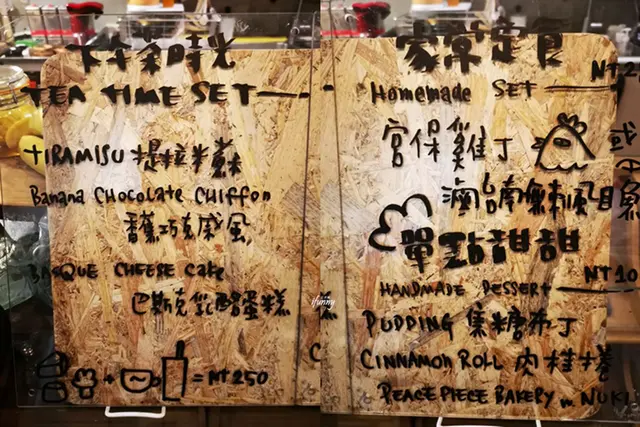 下午茶時光
TEA TIME SET
TIRAMISU 提拉米蘇
Banana CHOCOLATE CHIFFON
香蕉巧克戚風
BASQUE CHEESE Cake
巴斯克乳酪蛋糕
+ = NT 250
ifunny
家常定食
NT 2
Homemade SET
宮保雞丁
或
滷台南無刺虱目魚
單點甜甜
NT 10
HANDMADE DESSERT
PUDDING 焦糖布丁
CINNAMON ROLL 肉桂捲
PEACE PIECE BAKERY in NUKI